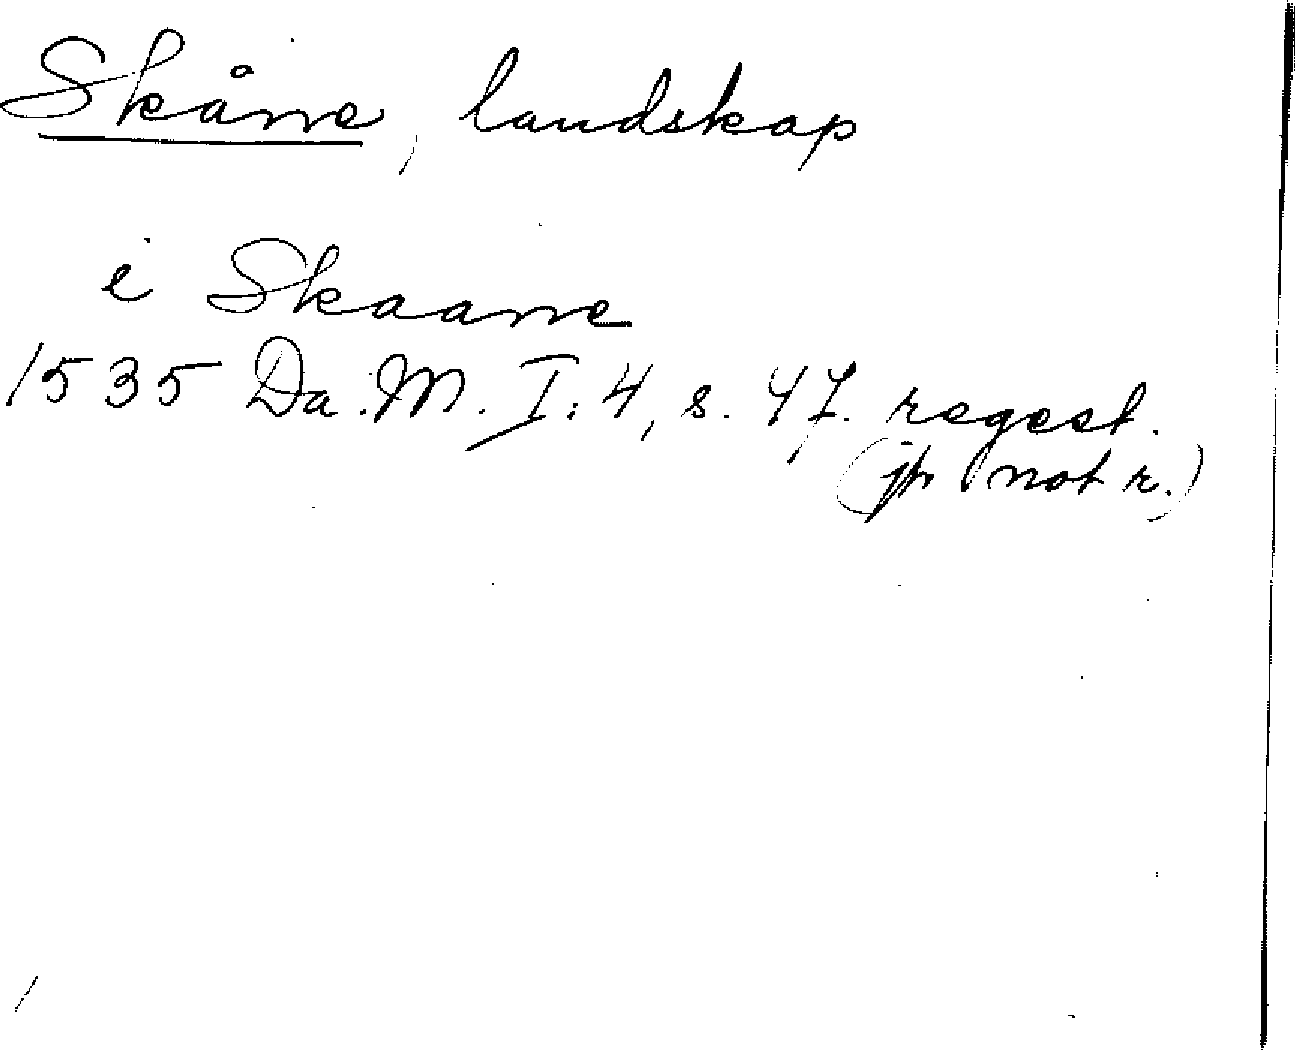 Skåne, landskap
i Skaane
1535 Da. M. I: 4, s. 47. regest.
(jfr not r.)